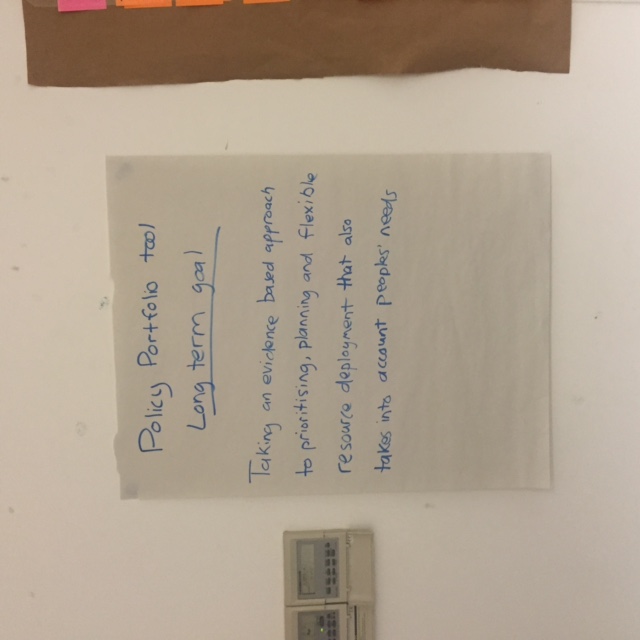 Policy Portfolio tool
Long term goal
Taking an evidence based approach
to prioritising, planning and flexible
resource deployment that also
takes into account peoples' needs